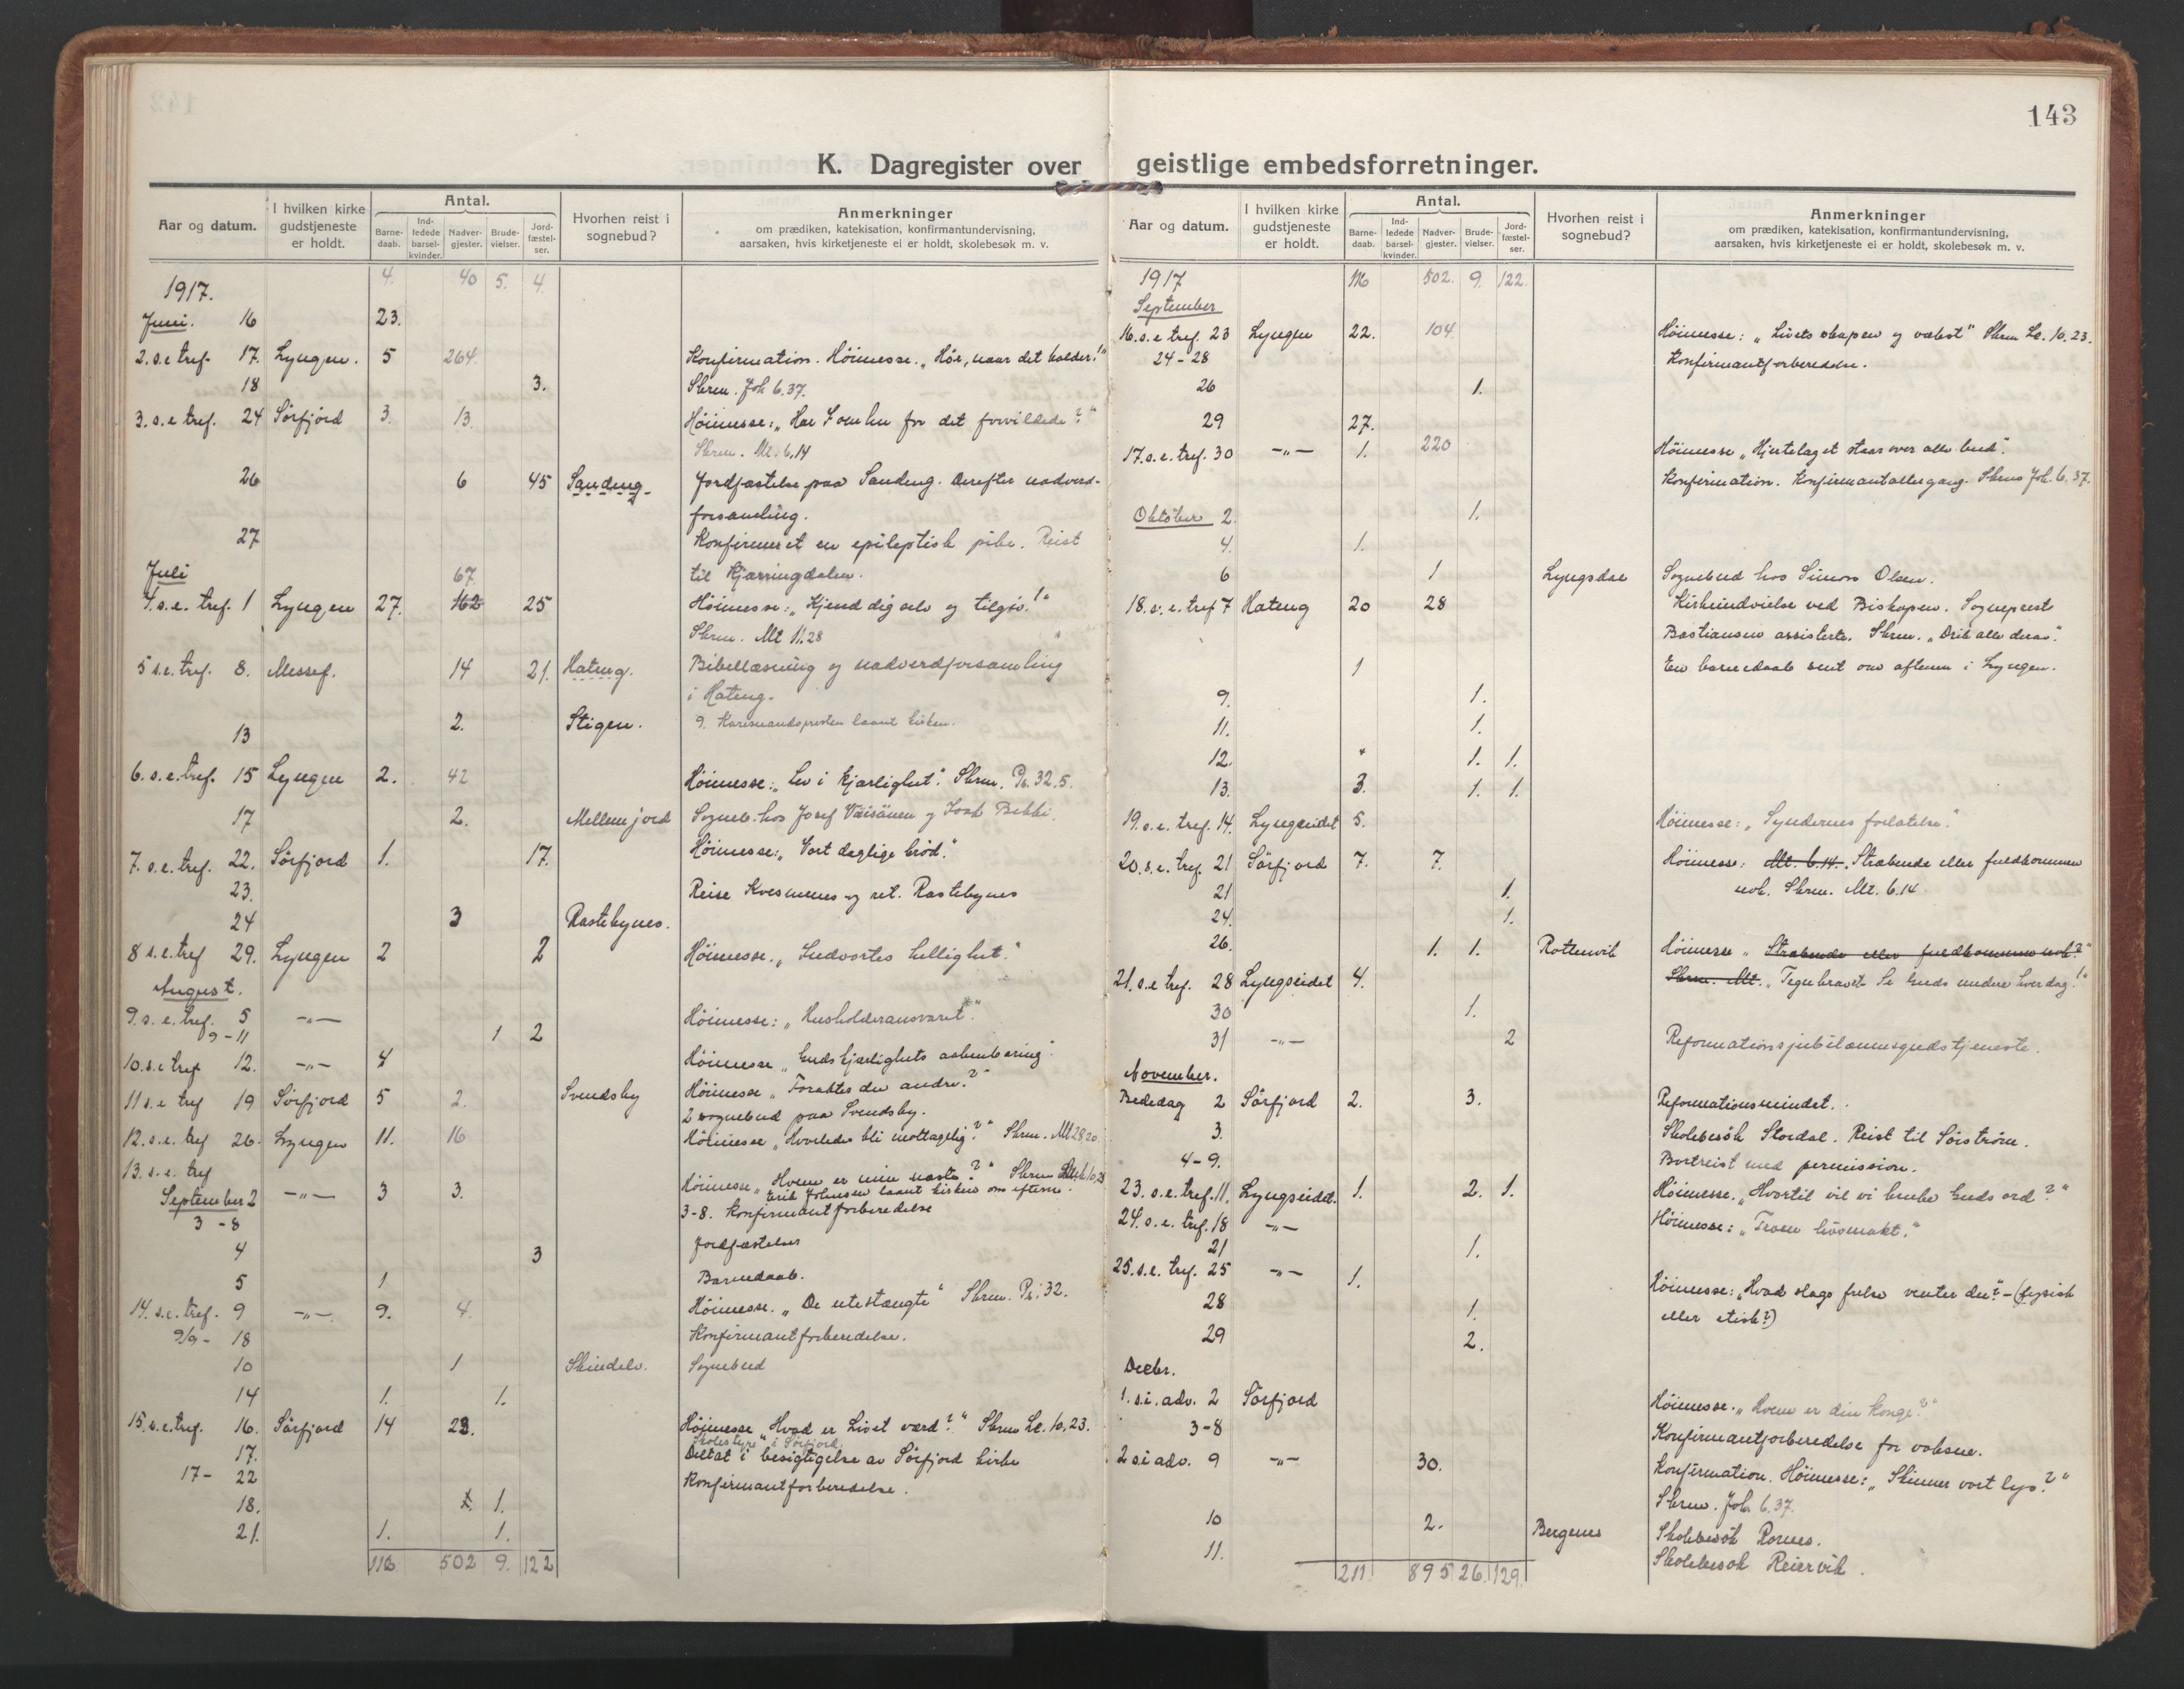 143
K. Dagregister over geistlige embedsforretninger.
Aar og datum. I hvilken kirke gudstjeneste er holdt. Antal. Barne-daab. Ind-ledede barsel-kvinder. Nadver-gjester. Brude-vielser. Jord-fæstel-ser. Hvorhen reist i sognebud? Anmerkninger om prædiken, katekisation, konfirmantundervisning, aarsaken, hvis kirketjeneste ei er holdt, skolebesøk m. v.
1917. 4. 40 5. 4.
Juni. 16 23.
2. s.e tref. 17. Lyngen. 5 264. Konfirmation. Höimesse. „Hör, naar det kalder!"
18 3. Skrm. Joh 6.37.
3. s.e tref. 24 Sörfjord 3. 13. Höimesse: „Har I omhu for det forvildede?"
Skrm. Mt. 6,14
26 6 45 Sandeng. Jordfæstelse paa Sandeng. Derefter nadverd-
forsamling.
27 Konfirmeret en epileptisk pike. Reist
Juli 67. til Kjærringdalen.
4. s.e. tref. 1 Lyngen 27. 162 25 Höimesse: „Kjend dig selv og tilgiv!"
Skrm. Mt 11.28
5 s.e. tref. 8. Messef. 14 21. Hateng. Bibellæsning og nadverdforsamling
i Hateng.
2. Stigen. 9. Karesuandopresten laant kirken.
13
6. s.e. tref. 15 Lyngen 2. 42 Höimesse: „Lev i kjærlighet". Skrm. Ps. 32.5.
17 2. Mellemjord Sogneb. hos Josef Väisänen og
7. s.e. tref. 22. Sörfjord 1. 17. Höimesse: „Vort daglige bröd."
23. Reise Kvesmenes og ret. Rastebynes
24 3 Rastebynes.
8 s.e. tref 29. Lyngen 2 2 Höimesse. „Indvortes hellighet."
August.
9. s.e. tref. 5 -„- Höimesse: „Husholderansvaret."
9-11 1 2
10. s.e tref 12. -„- 4 Höimesse „Guds kjærlighets aabenbaring".
11 s.e tref 19 Sörfjord 5 2. Svendsby Höimesse „Foraktes du andre?"
2 sognebud paa Svendsby.
12. s.e. tref 26. Lyngen 11. 16 Höimesse „Hvorledes bli mottagelig?" Skrm. Mt 28 20
13. s.e. tref
September 2 -„- 3 3. Höimesse „Hvem er min næste?" Skrm
Erik Johnsen laant kirken om efterm.
3-8 3-8. Konfirmantforberedelse
4 3 Jordfæstelser
5 1 Barnedaab.
14. s.e. tref. 9 -„- 9. 4. Höimesse. „De utestængte" Skrm. Ps. 32.
9/9- 18 Konfirmantforberedelse.
10 1 Skindelv. Sognebud
14 1. 1.
15. s.e. tref. 16. Sörfjord 14 23. Höimesse „Hvad er Livet værd?" Skrm Lc. 10,23.
Skolestyre i Sörfjord.
17. Deltat i besigtigelse av Sörfjord kirke
17- 22 Konfirmantforberedelse.
18. 1.
21. 1. 1.
116 502 9. 122
Aar og datum. I hvilken kirke gudstjeneste er holdt. Antal. Barne-daab. Ind-ledede barsel-kvinder. Nadver-gjester. Brude-vielser. Jord-fæstel-ser. Hvorhen reist i sognebud? Anmerkninger om prædiken, katekisation, konfirmantundervisning, aarsaken, hvis kirketjeneste ei er holdt, skolebesøk m. v.
1917 116 502. 9. 122.
September
16. s.e tref. 23 Lyngen 22. 104 Höimesse: „Livets skapen og vækst" Skrm Lc. 10.23.
24-28 Konfirmantforberedelse.
26 1.
29 27.
17. s.e. tref. 30 -„- 1. 220 Höimesse „Hjertelaget staar over alle bud".
Konfirmation. Konfirmantaltergang. Skrm Joh. 6.37.
Oktober 2. 1.
4. 1.
6 1 Lyngsdal Sognebud hos Simon Olsen.
18. s.e. tref 7 Hateng 20 28 Kirkeindvielse ved Biskopen. Sogneprest
Bastiansen assisterte. Skrm. „Drik alle derav".
1 En barnedaab sent om aftenen i Lyngen.
9. 1.
11. 1.
12. 1. 1.
13. 3. 1. 1.
19. s.e. tref. 14. Lyngseidet 5. Höimesse: „Syndernes forlatelse."
20. s.e. tref. 21 Sörfjord 7. 7. Höimesse: Mt. 6.14. Stræbende eller fuldkommen
21 1. nok. Skrm. Mt. 6.14
24. 1.
26. 1. 1. Rottenvik Höimesse „Stræbende eller fuldkommen nok?"
21. s.e tref. 28 Lyngseidet 4. Skrm. Mt. „Tegnkravet. Se Guds undere hverdag!"
30 1.
31 -„- 2 Reformationsjubilæumsgudstjeneste.
November.
Bededag 2 Sörfjord 2. 3. Reformationsmindet.
3. Skolebesök Stordal. Reist til Sörström.
4-9. Bortreist med permission.
23. s.e. tref. 11. Lyngseidet. 1. 2. 1. Höimesse. „Hvortil vil vi bruke Guds ord?"
24. s.e. tref. 18 -„- Höimesse: „Troen livsmakt."
21 1.
25. s.e. tref. 25 -„- 1. Höimesse: „Hvad slags frelse venter du?" - (fysisk
28 1. eller etisk?)
29 2.
Decbr.
1. s.i. adv. 2 Sörfjord Höimesse. „Hvem er din konge?"
3-8 Konfirmantforberedelse for voksne.
2 s.i adv. 9 -„- 30. Konfirmation. Höimesse: „Skinner vort lys?"
Skrm. Joh 6.37.
10 2. Bergenes Skolebesök Pornes.
11. Skolebesök Reiervik.
211 895 26. 129.